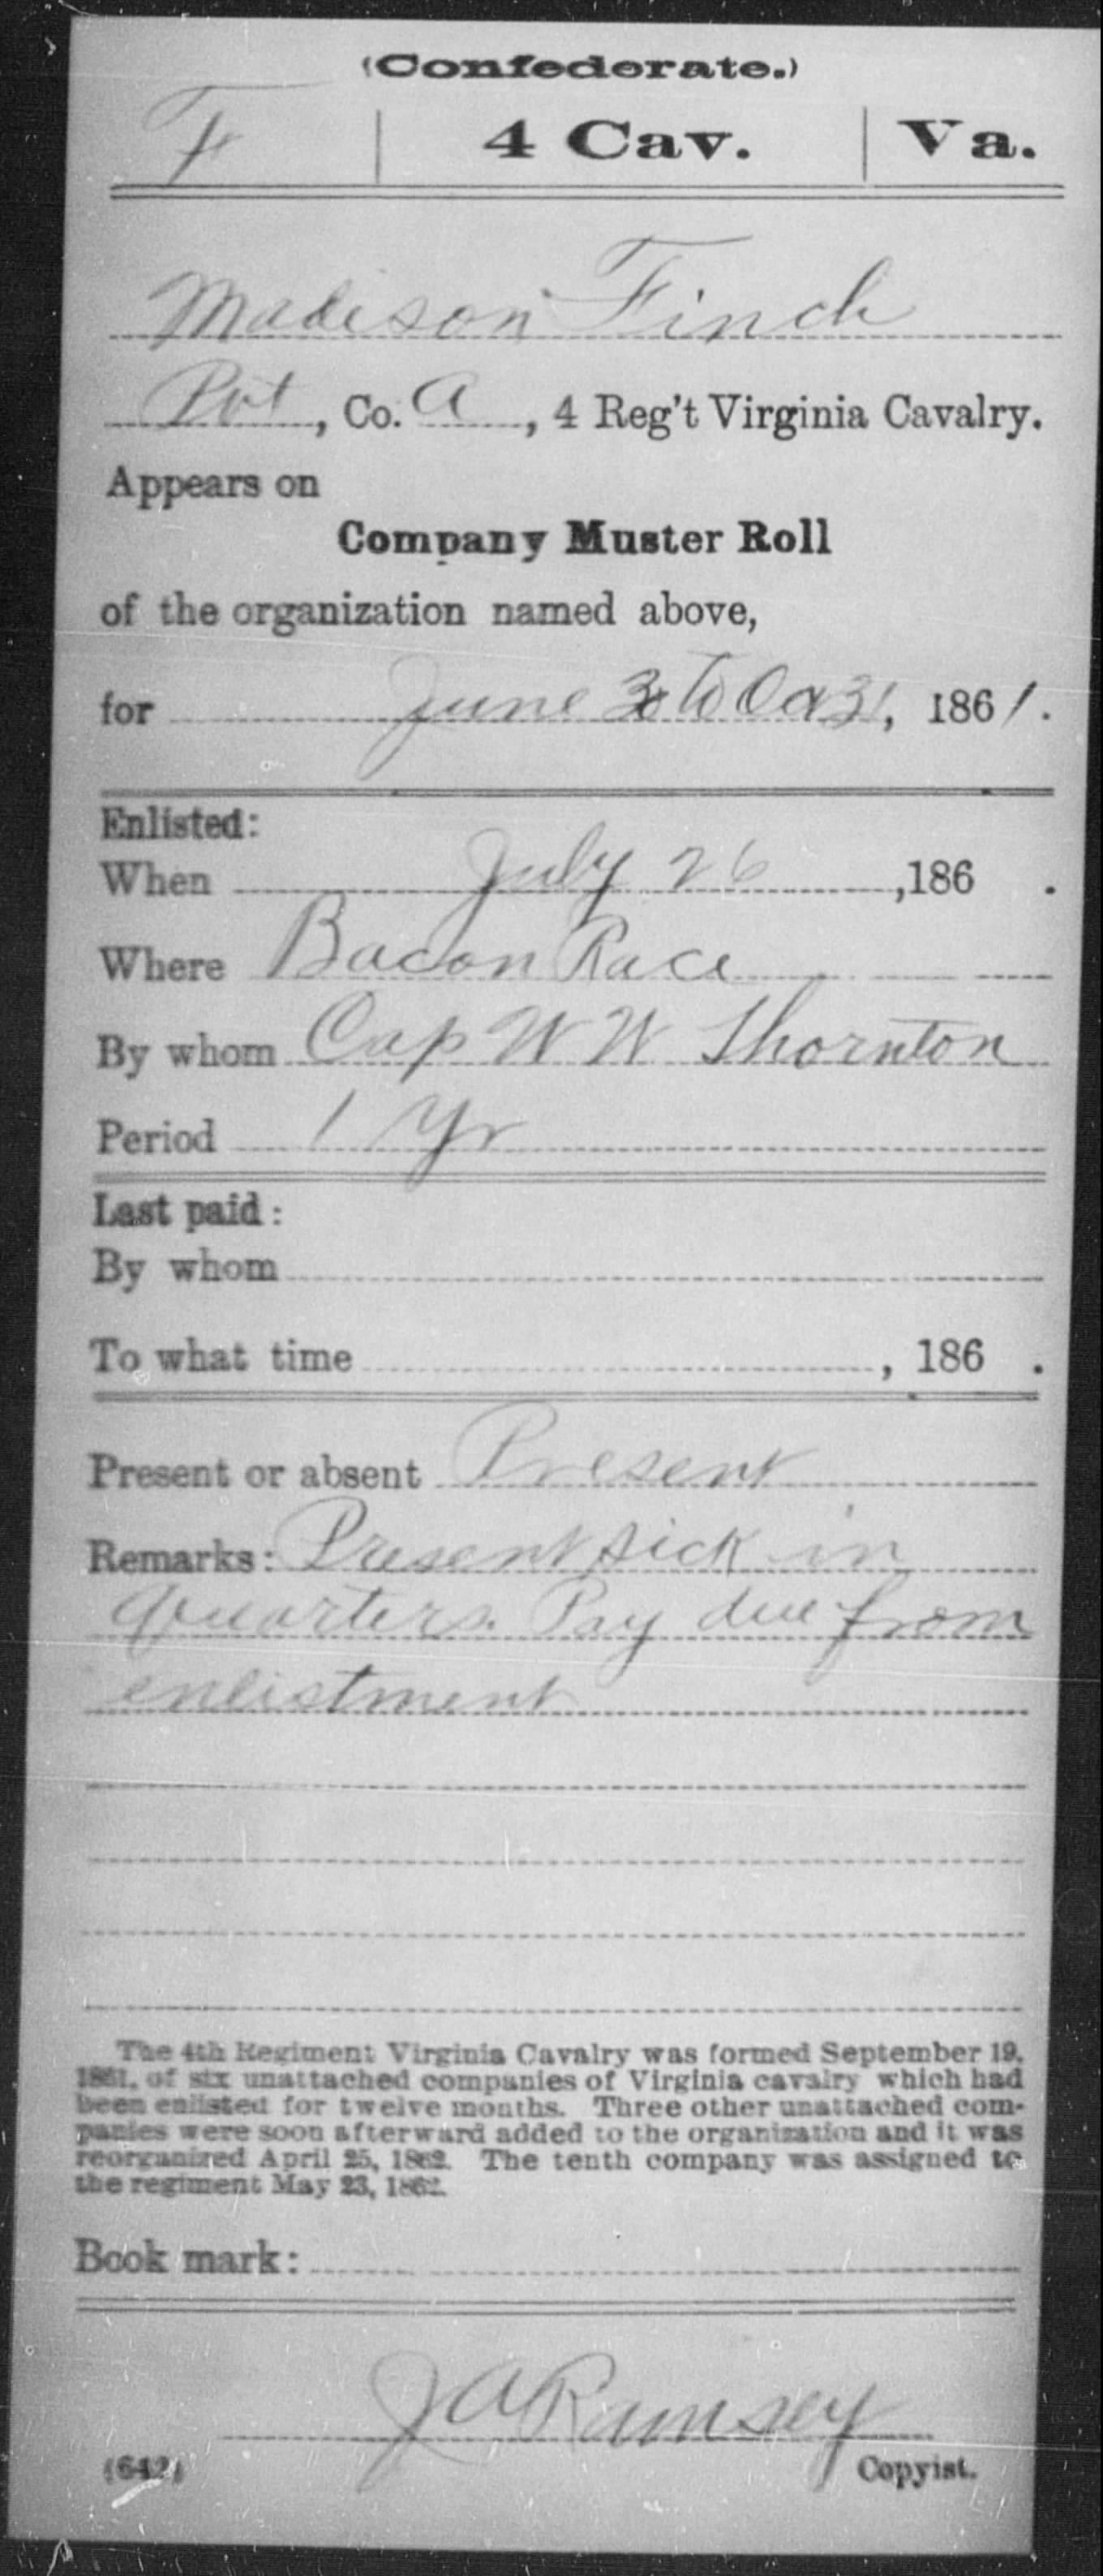 (Confederate.)
F | 4 Cav. | Va.
Madison Finch
Pvt, Co. A, 4 Reg't Virginia Cavalry.
Appears on
Company Muster Roll
of the organization named above,
for June 30 to Oct 31, 1861.
Enlisted:
When July 26, 186 .
Where Bacon Race
By whom Cap W W Thornton
Period 1 Yr
Last paid:
By whom
To what time , 186 .
Present or absent Present
Remarks: Present sick in
quarters. Pay due from
enlistment
The 4th Regiment Virginia Cavalry was formed September 19,
1861, of six unattached companies of Virginia cavalry which had
been enlisted for twelve months. Three other unattached com-
panies were soon afterward added to the organization and it was
reorganized April 25, 1862. The tenth company was assigned to
the regiment May 23, 1862.
Book mark:
J A Ramsey
(642) Copyist.